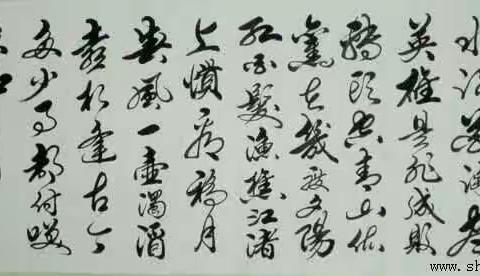 水浪花淘尽
英雄是非成敗
轉頭空青山依
舊在幾度夕陽
紅白髮漁樵江渚
上慣看秋月
春風一壺濁酒
喜相逢古今
多少事都付笑
www.sh